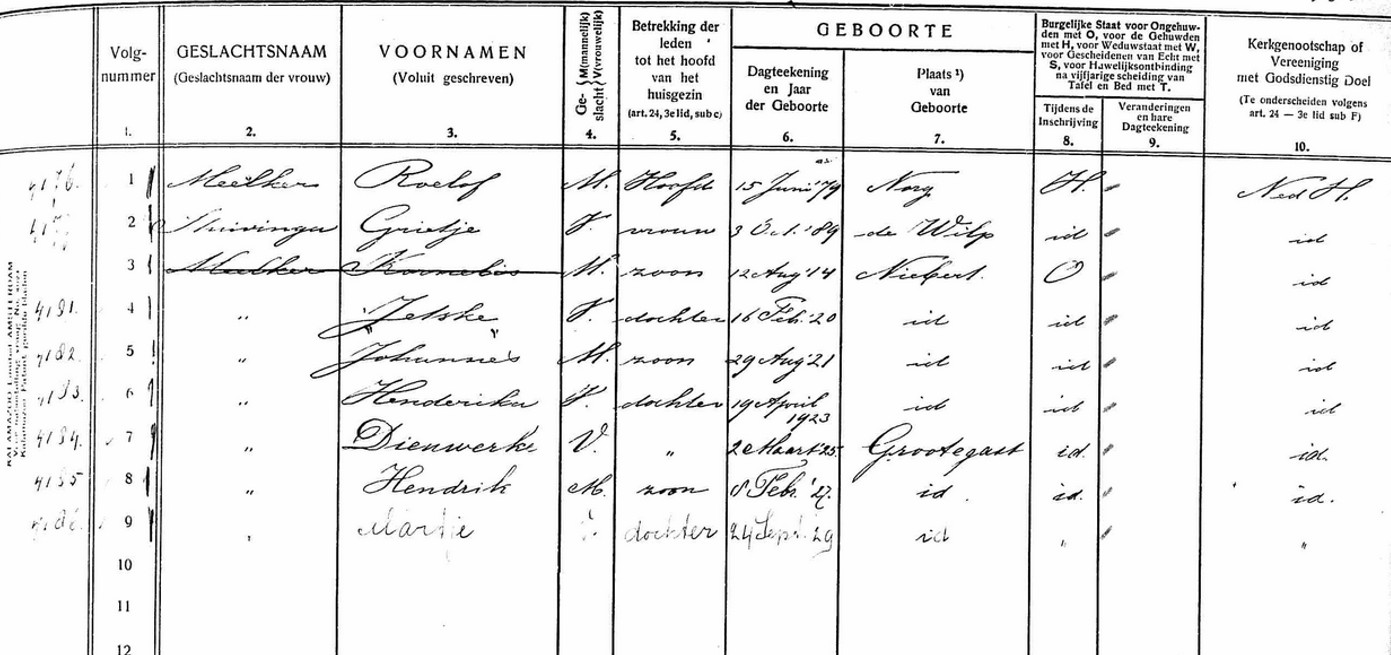 Volg-nummer GESLACHTSNAAM (Geslachtsnaam der vrouw) VOORNAMEN (Voluit geschreven) Ge-slacht M(mannelijk) V(vrouwelijk) Betrekking der leden tot het hoofd van het huisgezin (art. 24, 3e lid, sub c)
GEBOORTE
Dagteekening en Jaar der Geboorte Plaats ¹) van Geboorte
Burgelijke Staat voor Ongehuw-
den met O, voor de Gehuwden
met H, voor Weduwstaat met W,
voor Gescheidenen van Echt met
S, voor Huwelijksontbinding
na vijfjarige scheiding van
Tafel en Bed met T.
Tijdens de Inschrijving Veranderingen en hare Dagteekening
Kerkgenootschap of
Vereeniging
met Godsdienstig Doel
(Te onderscheiden volgens
art. 24 — 3e lid sub F)
1. 2. 3. 4. 5. 6. 7. 8. 9. 10.
4176. 1 Meelker Roelof M. Hoofd 15 Juni '79 Norg H. Ned H.
2 Grietje V. vrouw 3 Oct. '89 de Wilp id id
3 Meelker Kornelis M. zoon 12 Aug '14 Niebert. O id
4181. 4 " Jetske V. dochter 16 Feb. '20 id id id
4182. 5 " Johannes M. zoon 29 Aug '21 id id id
4183. 6 " Henderika V. dochter 19 April 1923 id id id
4184. 7 " Dienwerke V. " 2 Maart '25 Grootegast id. id.
4185 8 " Hendrik M. zoon 8 Febr. '27. id. id. id.
9 " Martje dochter 24 Sept. 29 id " "
10
11
12